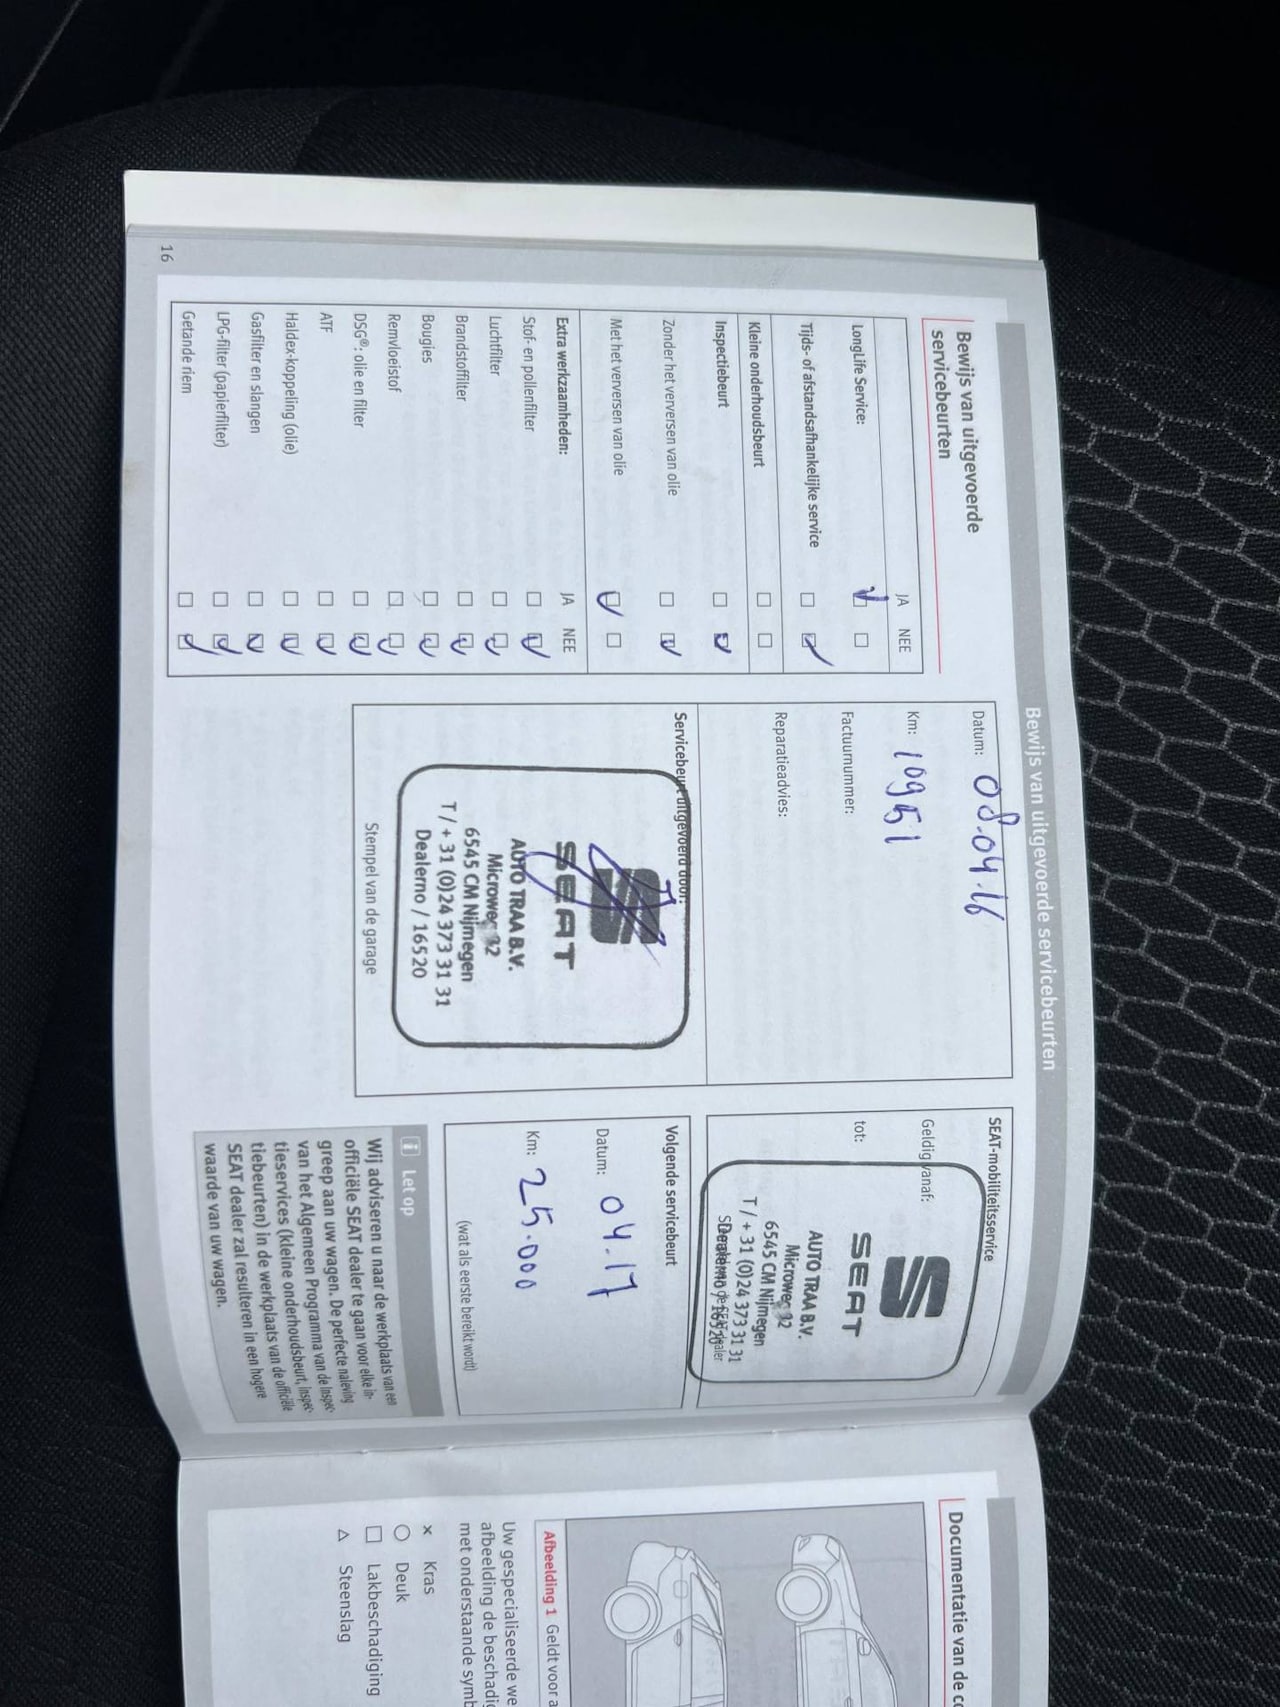 Bewijs van uitgevoerde servicebeurten
Bewijs van uitgevoerde
servicebeurten
JA NEE
LongLife Service:
Tijds- of afstandsafhankelijke service
Kleine onderhoudsbeurt
Inspectiebeurt
Zonder het verversen van olie
Met het verversen van olie
Extra werkzaamheden: JA NEE
Stof- en pollenfilter
Luchtfilter
Brandstoffilter
Bougies
Remvloeistof
DSG®: olie en filter
ATF
Haldex-koppeling (olie)
Gasfilter en slangen
LPG-filter (papierfilter)
Getande riem
16
Datum: 08.04.16
Km: 10951
Factuurnummer:
Reparatieadvies:
Servicebeurt uitgevoerd door:
SEAT
AUTO TRAA B.V.
Microweg 32
6545 CM Nijmegen
T / + 31 (0)24 373 31 31
Dealerno / 16520
Stempel van de garage
SEAT-mobiliteitsservice
Geldig vanaf:
tot:
SEAT
AUTO TRAA B.V.
Microweg 32
6545 CM Nijmegen
T / + 31 (0)24 373 31 31
Dealerno / 16520
Volgende servicebeurt
Datum: 04.17
Km: 25.000
(wat als eerste bereikt wordt)
i Let op
Wij adviseren u naar de werkplaats van een
officiële SEAT dealer te gaan voor elke in-
greep aan uw wagen. De perfecte naleving
van het Algemeen Programma van de Inspec-
tieservices (kleine onderhoudsbeurt, Inspec-
tiebeurten) in de werkplaats van de officiële
SEAT dealer zal resulteren in een hogere
waarde van uw wagen.
Documentatie van de c
Afbeelding 1 Geldt voor a
Uw gespecialiseerde we
afbeelding de beschadig
met onderstaande symb
× Kras
○ Deuk
□ Lakbeschadiging
△ Steenslag